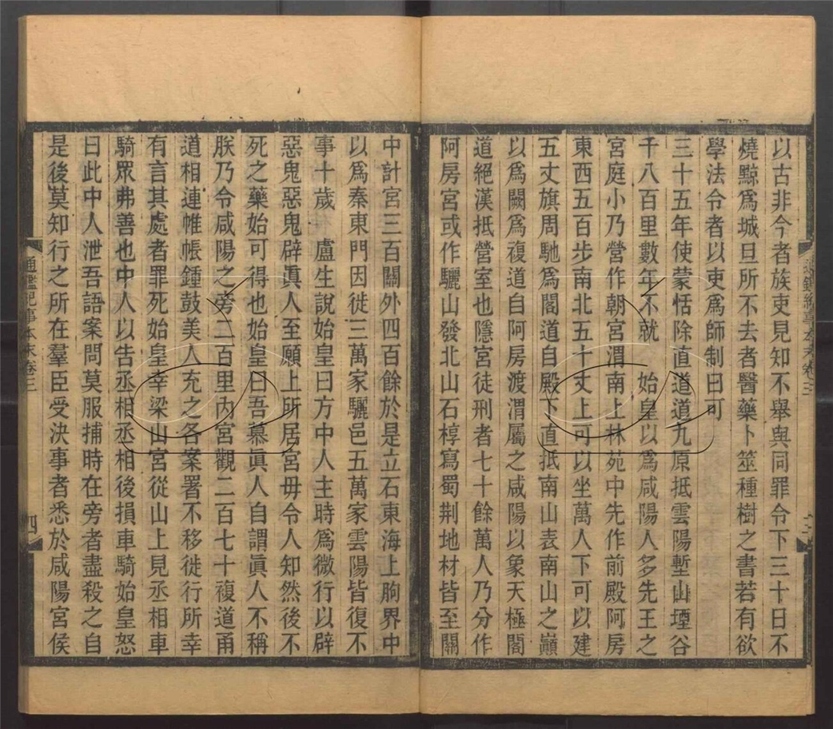 以古非今者族吏見知不舉與同罪令下三十日不
燒黥爲城旦所不去者醫藥卜筮種樹之書若有欲
學法令者以吏爲師制曰可
三十五年使蒙恬除直道道九原抵雲陽塹山堙谷
千八百里數年不就　始皇以爲咸陽人多先王之
宮庭小乃營作朝宮渭南上林苑中先作前殿阿房
東西五百步南北五十丈上可以坐萬人下可以建
五丈旗周馳爲閣道自殿下直抵南山表南山之巓
以爲闕爲複道自阿房渡渭屬之咸陽以象天極閣
道絕漢抵營室也隱宮徒刑者七十餘萬人乃分作
阿房宮或作驪山發北山石椁寫蜀荆地材皆至關
中計宮三百關外四百餘於是立石東海上朐界中
以爲秦東門因徙三萬家驪邑五萬家雲陽皆復不
事十歲　盧生說始皇曰方中人主時爲微行以辟
惡鬼惡鬼辟眞人至願上所居宮毋令人知然後不
死之藥始可得也始皇曰吾慕眞人自謂眞人不稱
朕乃令咸陽之旁二百里內宮觀二百七十複道甬
道相連帷帳鍾鼓美人充之各案署不移徙行所幸
有言其處者罪死始皇幸梁山宮從山上見丞相車
騎眾弗善也中人以告丞相丞相後損車騎始皇怒
曰此中人泄吾語案問莫服捕時在旁者盡殺之自
是後莫知行之所在羣臣受決事者悉於咸陽宮侯
通鑑紀事本末卷三
四